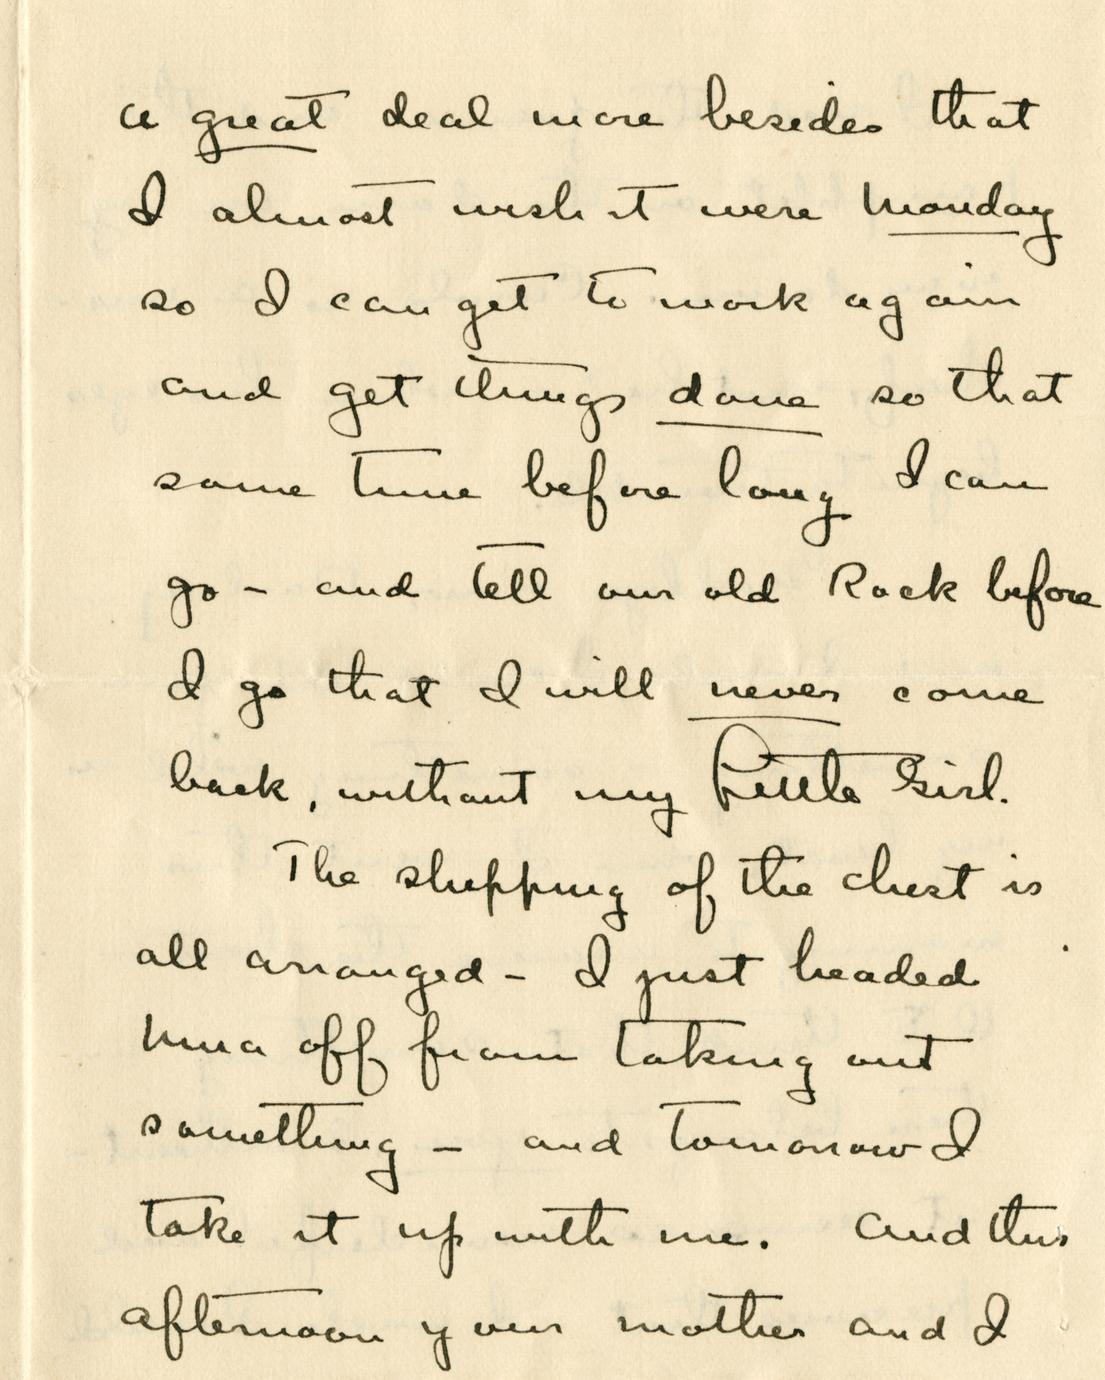 a great deal more besides that
I almost wish it were Monday
so I can get to work again
and get things done so that
some time before long I can
go - and tell our old Rock before
I go that I will never come
back, without my Little Girl.
The shipping of the chest is
all arranged - I just headed
Mina off from taking out
something - and tomorrow I
take it up with me. And this
afternoon your mother and I